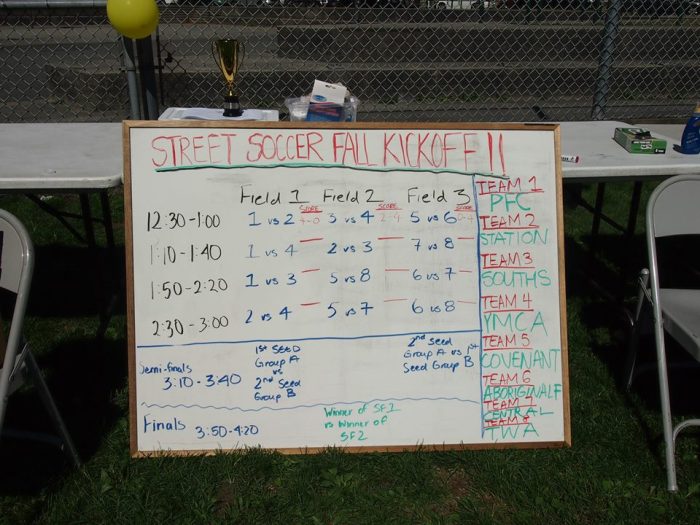 STREET SOCCER FALL KICKOFF !!
Field 1 Field 2 Field 3
SCORE SCORE SCORE
12:30-1:00 1 vs 2 4-0 3 vs 4 2-4 5 vs 6
1:10-1:40 1 vs 4 2 vs 3 7 vs 8
1:50-2:20 1 vs 3 5 vs 8 6 vs 7
2:30-3:00 2 vs 4 5 vs 7 6 vs 8
Semi-finals
3:10-3:40
1st SEED
Group A
vs
2nd Seed
Group B
2nd Seed
Group A vs 1st
Seed Group B
Finals 3:50-4:20
Winner of SF1
vs Winner of
SF2
TEAM 1
PFC
TEAM 2
STATION
TEAM 3
SOUTHS
TEAM 4
YMCA
TEAM 5
COVENANT
TEAM 6
ABORIGINALF
TEAM 7
CENTRAL
TEAM 8
TWA